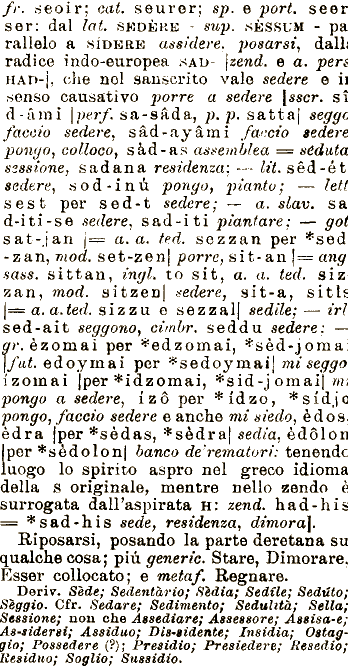 fr. seoir; cat. seurer; sp. e port. seer
ser: dal lat. SEDÈRE - sup. sÈSSUM - pa
rallelo a SÌDERE assidere, posarsi, dalla
radice indo-europea SAD- |zend. e a. pers
HAD-|, che nel sanscrito vale sedere e in
senso causativo porre a sedere |sscr. sî
d-âmi |perf. sa-sâda, p. p. satta| seggo
faccio sedere, sâd-ayâmi faccio sedere
pongo, colloco, sàd-as assemblea = seduta
sessione, sadana residenza; — lit. sêd-ét
sedere, sod-inú pongo, pianto; — lett
sest per sed-t sedere; — a. slav. sa
d-iti-se sedere, sad-iti piantare; — got
sat-jan |= a. a. ted. sezzan per *sed
-zan, mod. set-zen| porre, sit-an |= ang
sass. sittan, ingl. to sit, a. a. ted. siz
zan, mod. sitzen| sedere, sit-a, sitls
|= a. a. ted. sizzu e sezzal| sedile; — irl
sed-ait seggono, cimbr. seddu sedere: —
gr. èzomai per *edzomai, *sèd-jomai
|fut. edoymai per *sedoymai| mi seggo
ízomai |per *idzomai, *sid-jomai| mi
pongo a sedere, izô per *ídzo, *sídjo
pongo, faccio sedere e anche mi siedo, èdos,
èdra |per *sèdas, *sèdra| sedia, èdôlon
|per *sèdolon| banco de'rematori: tenendo
luogo lo spirito aspro nel greco idioma
della s originale, mentre nello zendo è
surrogata dall'aspirata H: zend. had-his
= *sad-his sede, residenza, dimora|.
Riposarsi, posando la parte deretana su
qualche cosa; più generic. Stare, Dimorare,
Esser collocato; e metaf. Regnare.
Deriv. Sède; Sedentàrio; Sèdia; Sedíle; Sedúto;
Sèggio. Cfr. Sedare; Sedimento; Sedulità; Sella;
Sessione; non che Assediare; Assessore; Assisa-e;
As-sidersi; Assiduo; Dis-sidente; Insidia; Ostag-
gio; Possedere (?); Presidio; Presiedere; Resedio;
Residuo; Soglio; Sussidio.